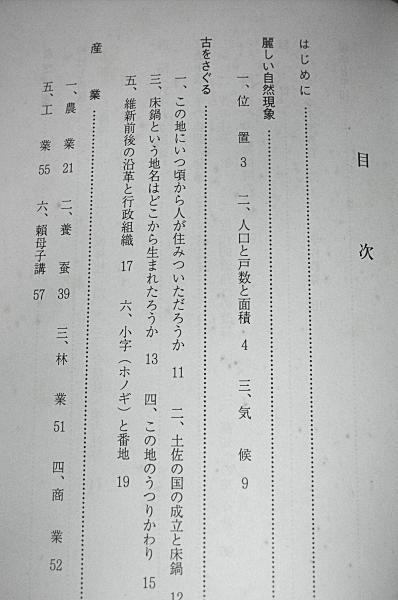 目次
はじめに……………………
麗しい自然現象……………………
一、位　置　3　二、人口と戸数と面積　4　三、気　候　9
古をさぐる……………………
一、この地にいつ頃から人が住みついただろうか　11　二、土佐の国の成立と床鍋　12
三、床鍋という地名はどこから生まれたろうか　13　四、この地のうつりかわり　15
五、維新前後の沿革と行政組織　17　六、小字（ホノギ）と番地　19
産　業……………………
一、農　業　21　二、養　蚕　39　三、林　業　51　四、商　業　52
五、工　業　55　六、頼母子講　57